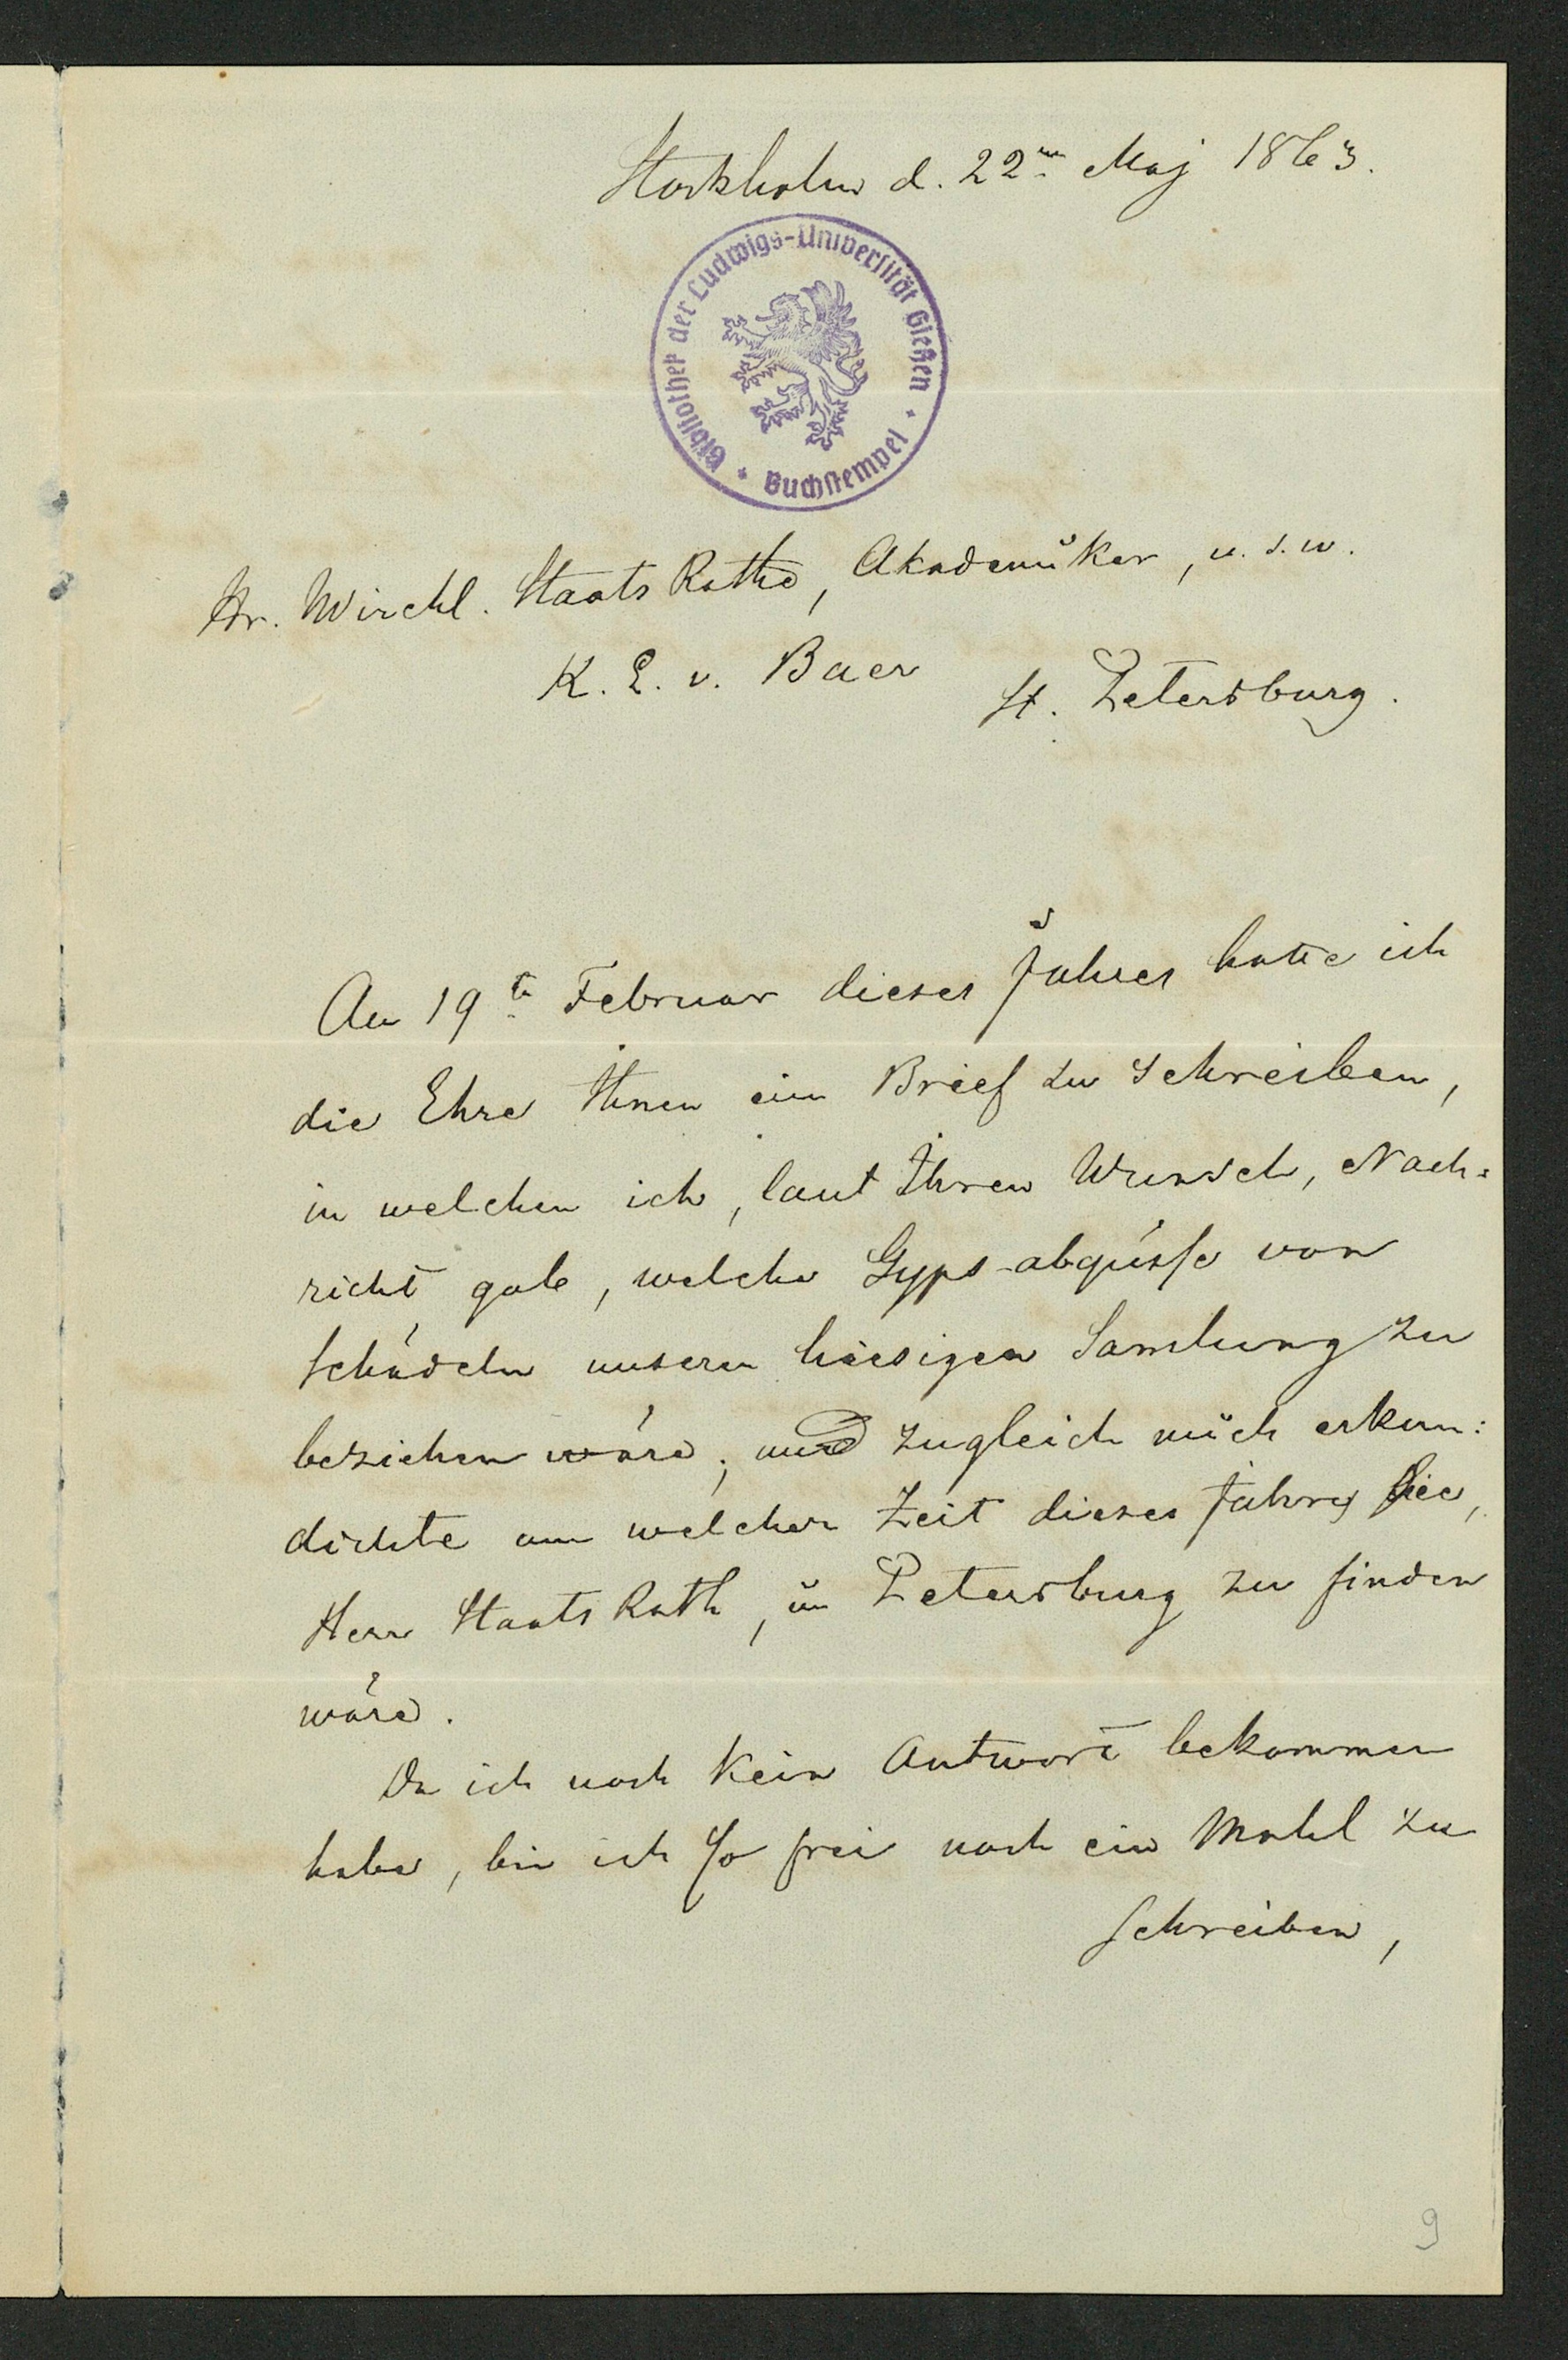 Stockholm d. 22ten Maj 1863.
Bibliothek der Ludwigs-Universität Gießen
Buchstempel
Hr. Wirckl. Staats Rathe, Akademiker, u. s. w.
K. E. v. Baer
St. Petersburg.
Am 19te Februar dieses Jahres hatte ich
die Ehre Ihnen ein Brief zu schreiben,
in welchen ich, laut Ihren Wunsch, Nach=
richt gab, welche Gyps-abgüsse von
Schädeln unseren hiesigen Samlung zu
beziehen wäre, und zugleich mich erkun=
dichte um welcher Zeit dieses Jahres Sie,
Herr Staats Rath, in Petersburg zu finden
wäre.
Da ich noch kein Antwort bekommen
habe, bin ich so frei noch ein Mahl zu
schreiben,
9